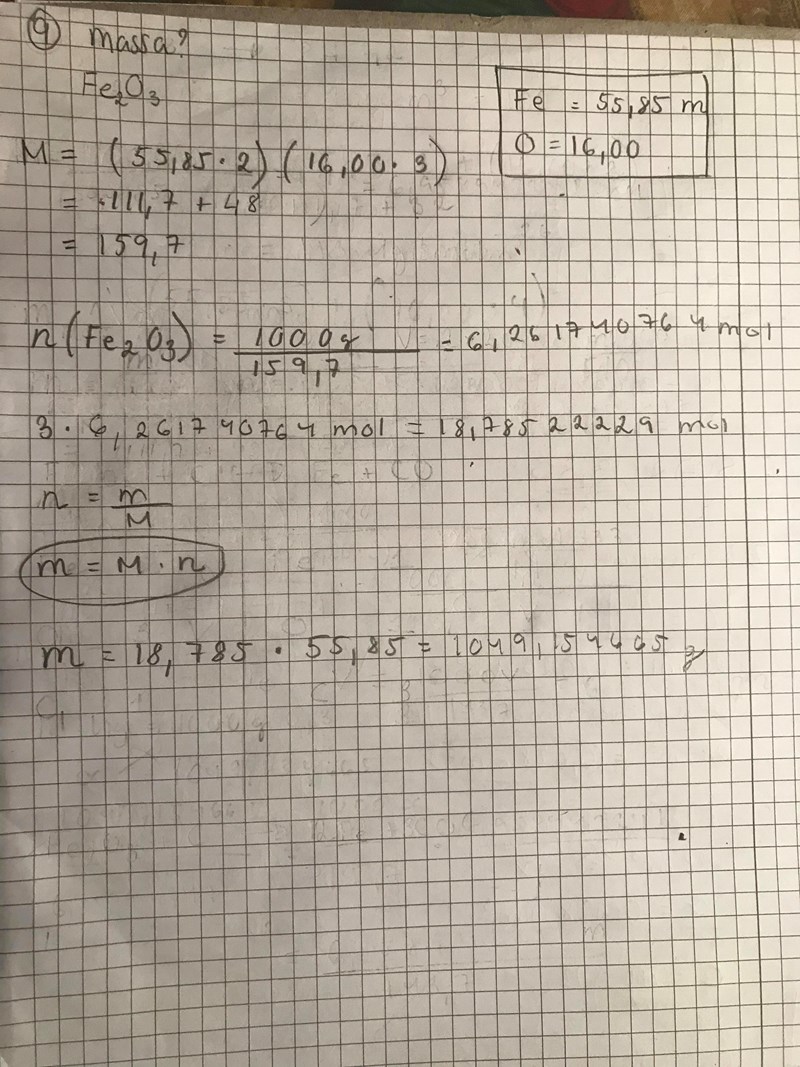 9 massa?
Fe2O3
Fe = 55,85 m
O = 16,00
M = (55,85 · 2) (16,00 · 3)
= 111,7 + 48
= 159,7
n(Fe2O3) = 1000g / 159,7 = 6,2617407644 mol
3 · 6,261740764 mol = 18,78522229 mol
n = m / M
m = M · n
m = 18,785 · 55,85 = 1049,154665 g